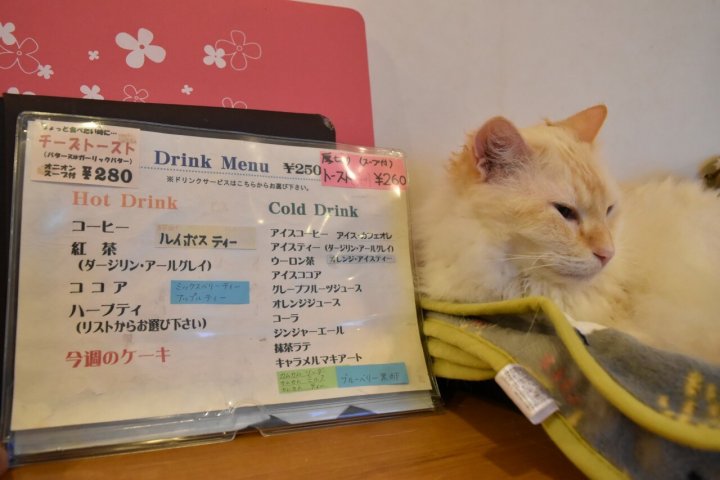 ちょっと食べたい時に…
チーズトースト
(バターorガーリックバター)
オニオンスープ付 ¥280
Drink Menu ¥250
※ドリンクサービスはこちらからお選び下さい。
厚切り (スープ付)
トースト ¥260
Hot Drink
コーヒー
ルイボス ティー
紅 茶
(ダージリン・アールグレイ)
ココア
ミックスベリーティー
アップルティー
ハーブティ
(リストからお選び下さい)
今週のケーキ
Cold Drink
アイスコーヒー アイス・カフェオレ
アイスティー (ダージリン・アールグレイ)
ウーロン茶 オレンジ・アイスティー
アイスココア
グレープフルーツジュース
オレンジジュース
コーラ
ジンジャーエール
抹茶ラテ
キャラメルマキアート
カムカム ソーダ
カムカム ミルク
カムカム ティー
ブルーベリー黒酢